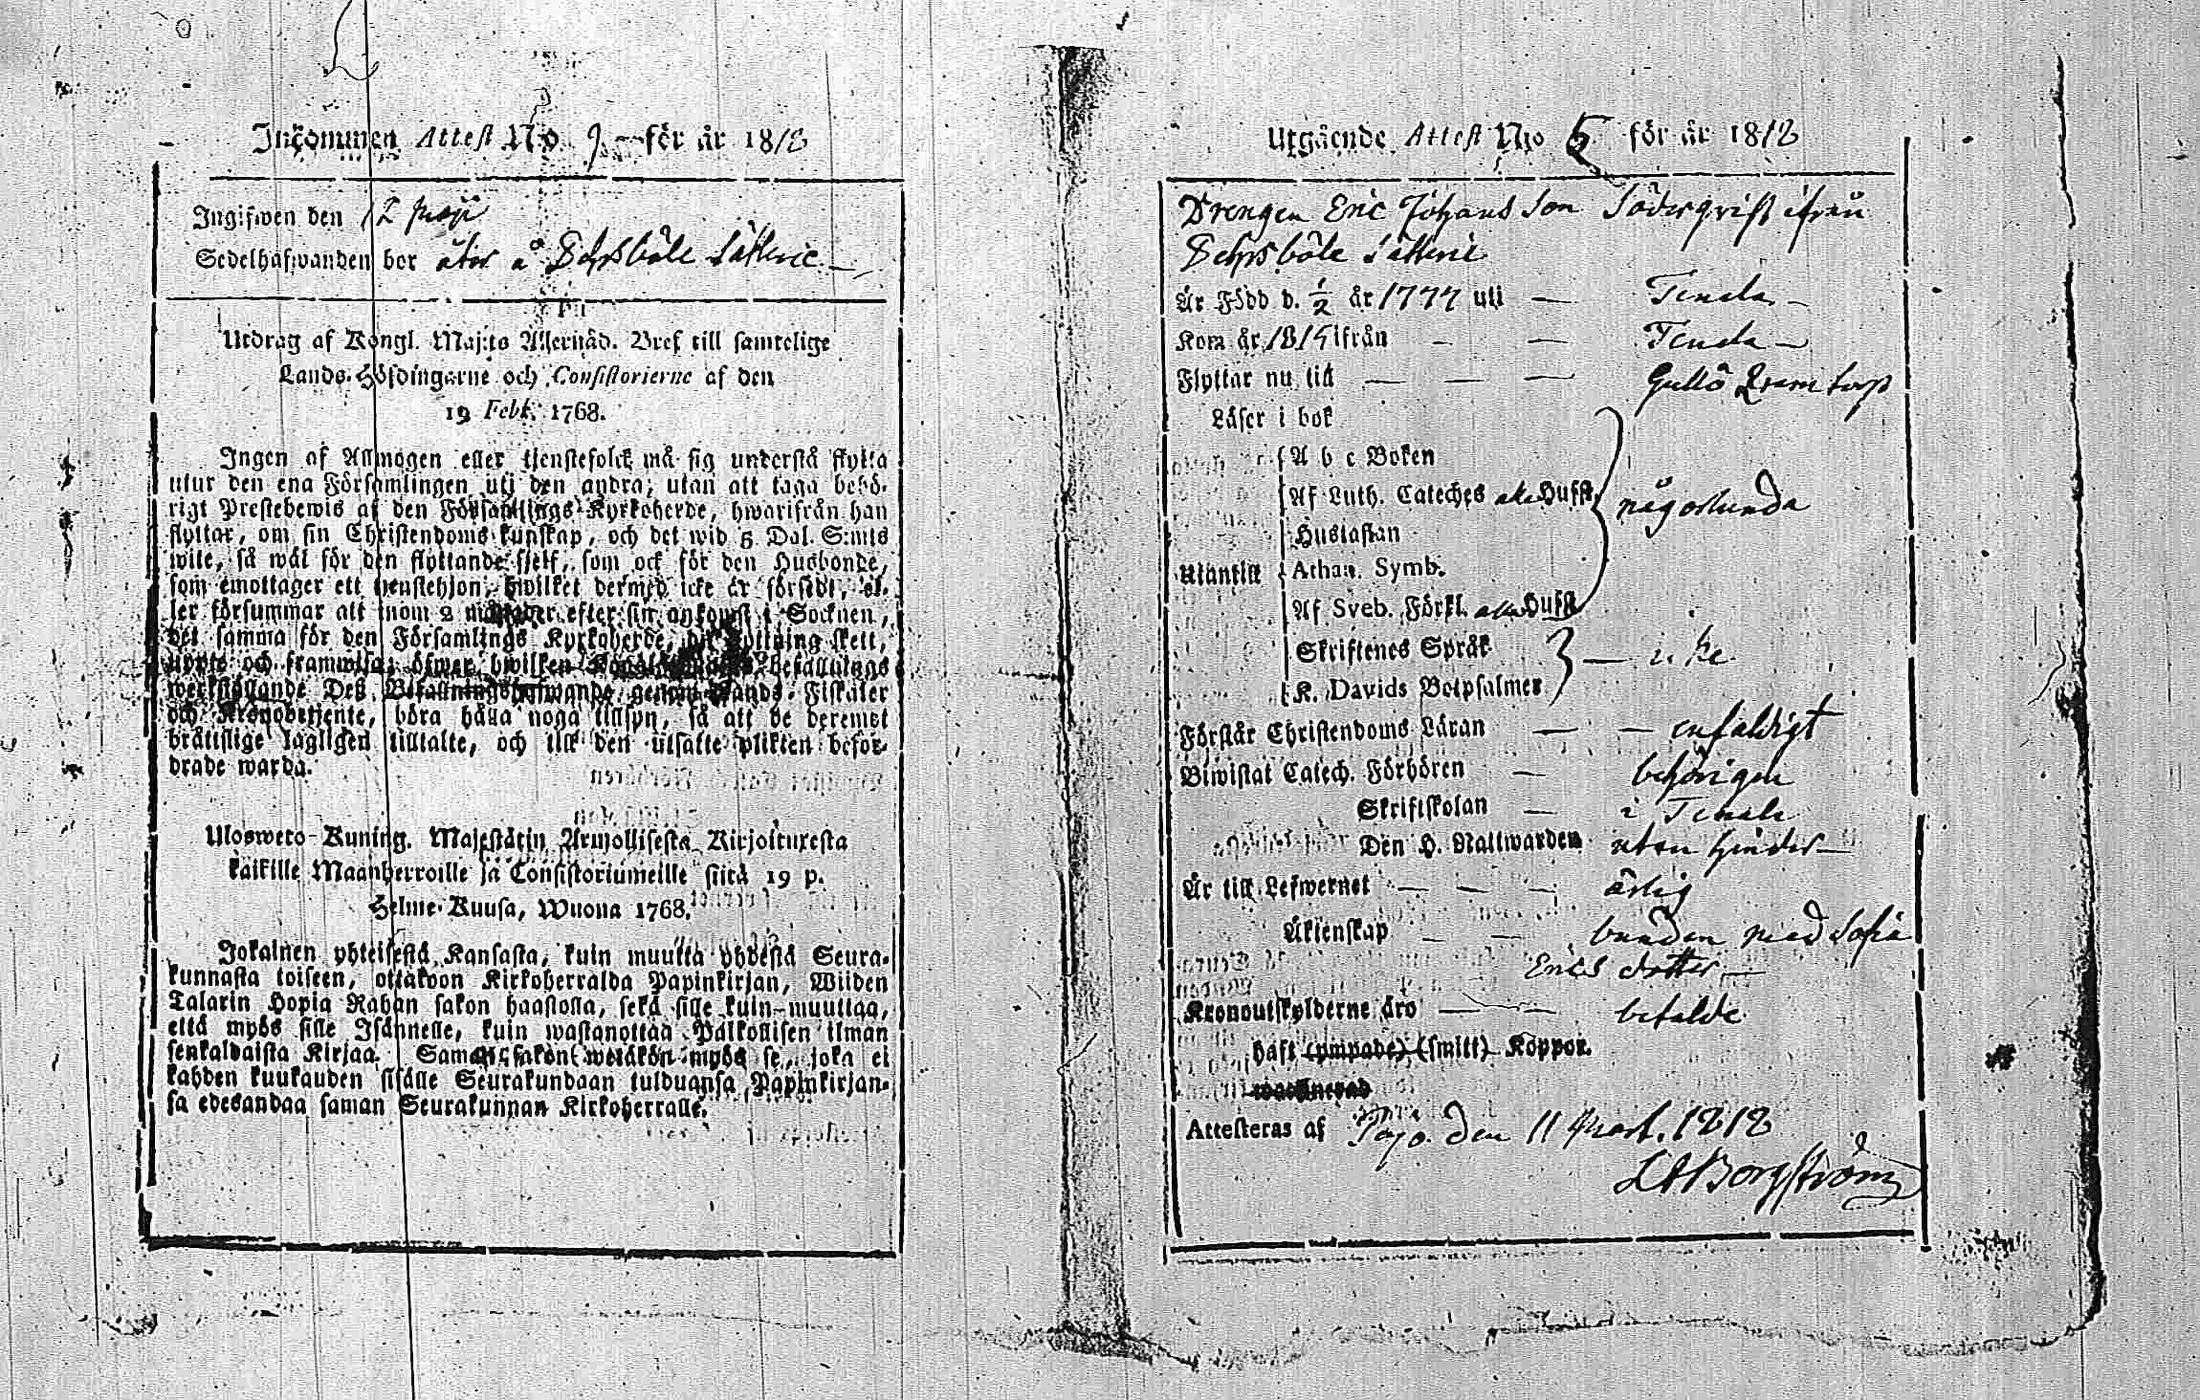 Inkommen Attest No 9 för år 1818
Ingifwen den 12 maji
Sedelhafwanden bor åter å Sätterie
Utdrag af Kongl. Maj:ts Allernåd. Bref till samtelige
Lands-Höfdingarne och Consistorierne af den
19 Febr. 1768.
Ingen af Allmogen eller tjenstefolck må sig understå flytta
utur den ena Församlingen uti den andra, utan att taga behö-
rigt Prestebewis af den Församlings Kyrkoherde, hwarifrån han
flyttar, om sin Christendoms kunskap, och det wid 5 Dal. S:mts
wite, så wäl för den flyttande sjelf, som ock för den Husbonde,
som emottager ett tjenstehjon, hwilket dermed icke är försedt, el-
ler försummar att inom 2 månader efter sin ankomst i Socknen,
det samma för den Församlings Kyrkoherde, dit flyttning skett,
uppte och framwisa; öfwer hwilken befallnings
werkställande Dess Befallningshafwande genom Lands-Fiskaler
och Kronobetjente, böra hålla noga tillsyn, så att de deremot
bråttslige lagligen tilltalte, och till den utsatte plikten befor-
drade warda.
Ulosweto Kuning. Majestätin Armollisesta Kirjoituxesta
kaikille Maanherroille ja Consistoriumeille siitä 19 p.
Helme-Kuusa, Wuona 1768.
Jokainen yhteisestä Kansasta, kuin muutta yhdestä Seura-
kunnasta toiseen, ottakoon Kirkoherralda Papinkirjan, Wiiden
Talarin Hopia Rahan sakon haastolla, sekä sille kuin muuttaa,
että myös sille Isännelle, kuin wastanottaa Palkollisen ilman
senkaldaista Kirjaa. Saman sakon wetäkön myös se, joka ei
kahden kuukauden sisälle Seurakundaan tulduansa Papinkirjan-
sa edesandaa saman Seurakunnan Kirkoherralle.
Utgående Attest No 5 för år 1818
Drengen Eric Johans Son Söderqvist ifrån
Sätterie
Är Född d. 1/2 år 1777 uti — Tenala —
Kom år 1815 ifrån — — Tenala —
Flyttar nu till — — — Gullö
Läser i bok
A b c Boken
Af Luth. Cateches Husst.
Hustaflan
Utantill Athan. Symb.
någorlunda
Af Sveb. Förkl. Husst
Skriftenes Språk
— icke
K. Davids Botpsalmer
Förstår Christendoms Läran — — enfaldigt
Biwistat Catech. Förhören — behörigen
Skriftskolan — i Tenala
Den H. Nattwarden utan hinder —
Är till Lefwernet — — — ärlig
Äktenskap — — bunden med Sofia
Erics dotter —
Kronoutskylderne äro — — betalde
haft (ympade) (smitt) Koppor.
waccinerad
Attesteras af Pojo den 11 Mart. 1818
Borgström